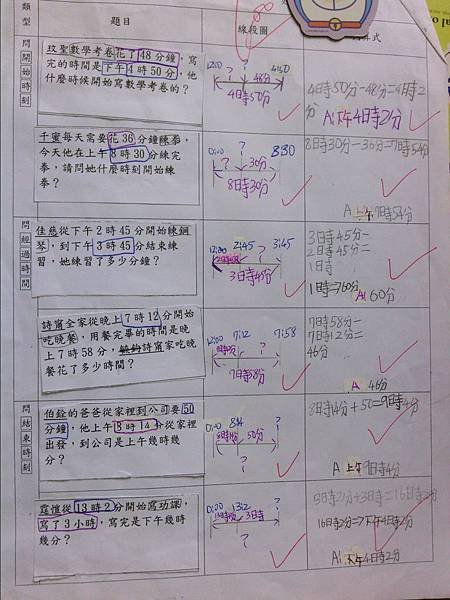 類型
題目
線段圖
算式
問開始時刻
玟聖數學考卷花了48分鐘，寫
完的時間是下午4時50分，他
什麼時候開始寫數學考卷的？
12:00 ? 48分 4:50
4時50分
4時50分-48分=4時2分
A:下午4時2分
千蜜每天需要花36分鐘練拳，
今天他在上午8時30分練完
拳，請問她什麼時刻開始練
拳？
0:00 ? 8:30
8時30分
8時30分-36分=7時54分
A:上午7時54分
問經過時間
佳慈從下午2時45分開始練鋼
琴，到下午3時45分結束練
習，她練習了多少分鐘？
12:00 2:45 ? 3:45
3時45分
3時45分-
2時45分=
1時
1時=60分
A:60分
詩甯全家從晚上7時12分開始
吃晚餐，用餐完畢的時間是晚
上7時58分，詩甯家吃晚
餐花了多少時間？
12:00 7:12 7:58
?
7時58分
7時58分-
7時12分=
46分
A 46分
問結束時刻
伯銓的爸爸從家裡到公司要50
分鐘，他上午8時14分從家裡
出發，到公司是上午幾時幾
分？
0:00 8:14 ?
8時14分 50分
?
8時14分+50=9時4分
A:上午9時4分
霆愷從13時2分開始寫功課，
寫了3小時，寫完是下午幾時
幾分？
0:00 13:2 ?
13時2分 3時
?
13時2分+3時=16時2分
16時2分=下午4時2分
A:下午4時2分